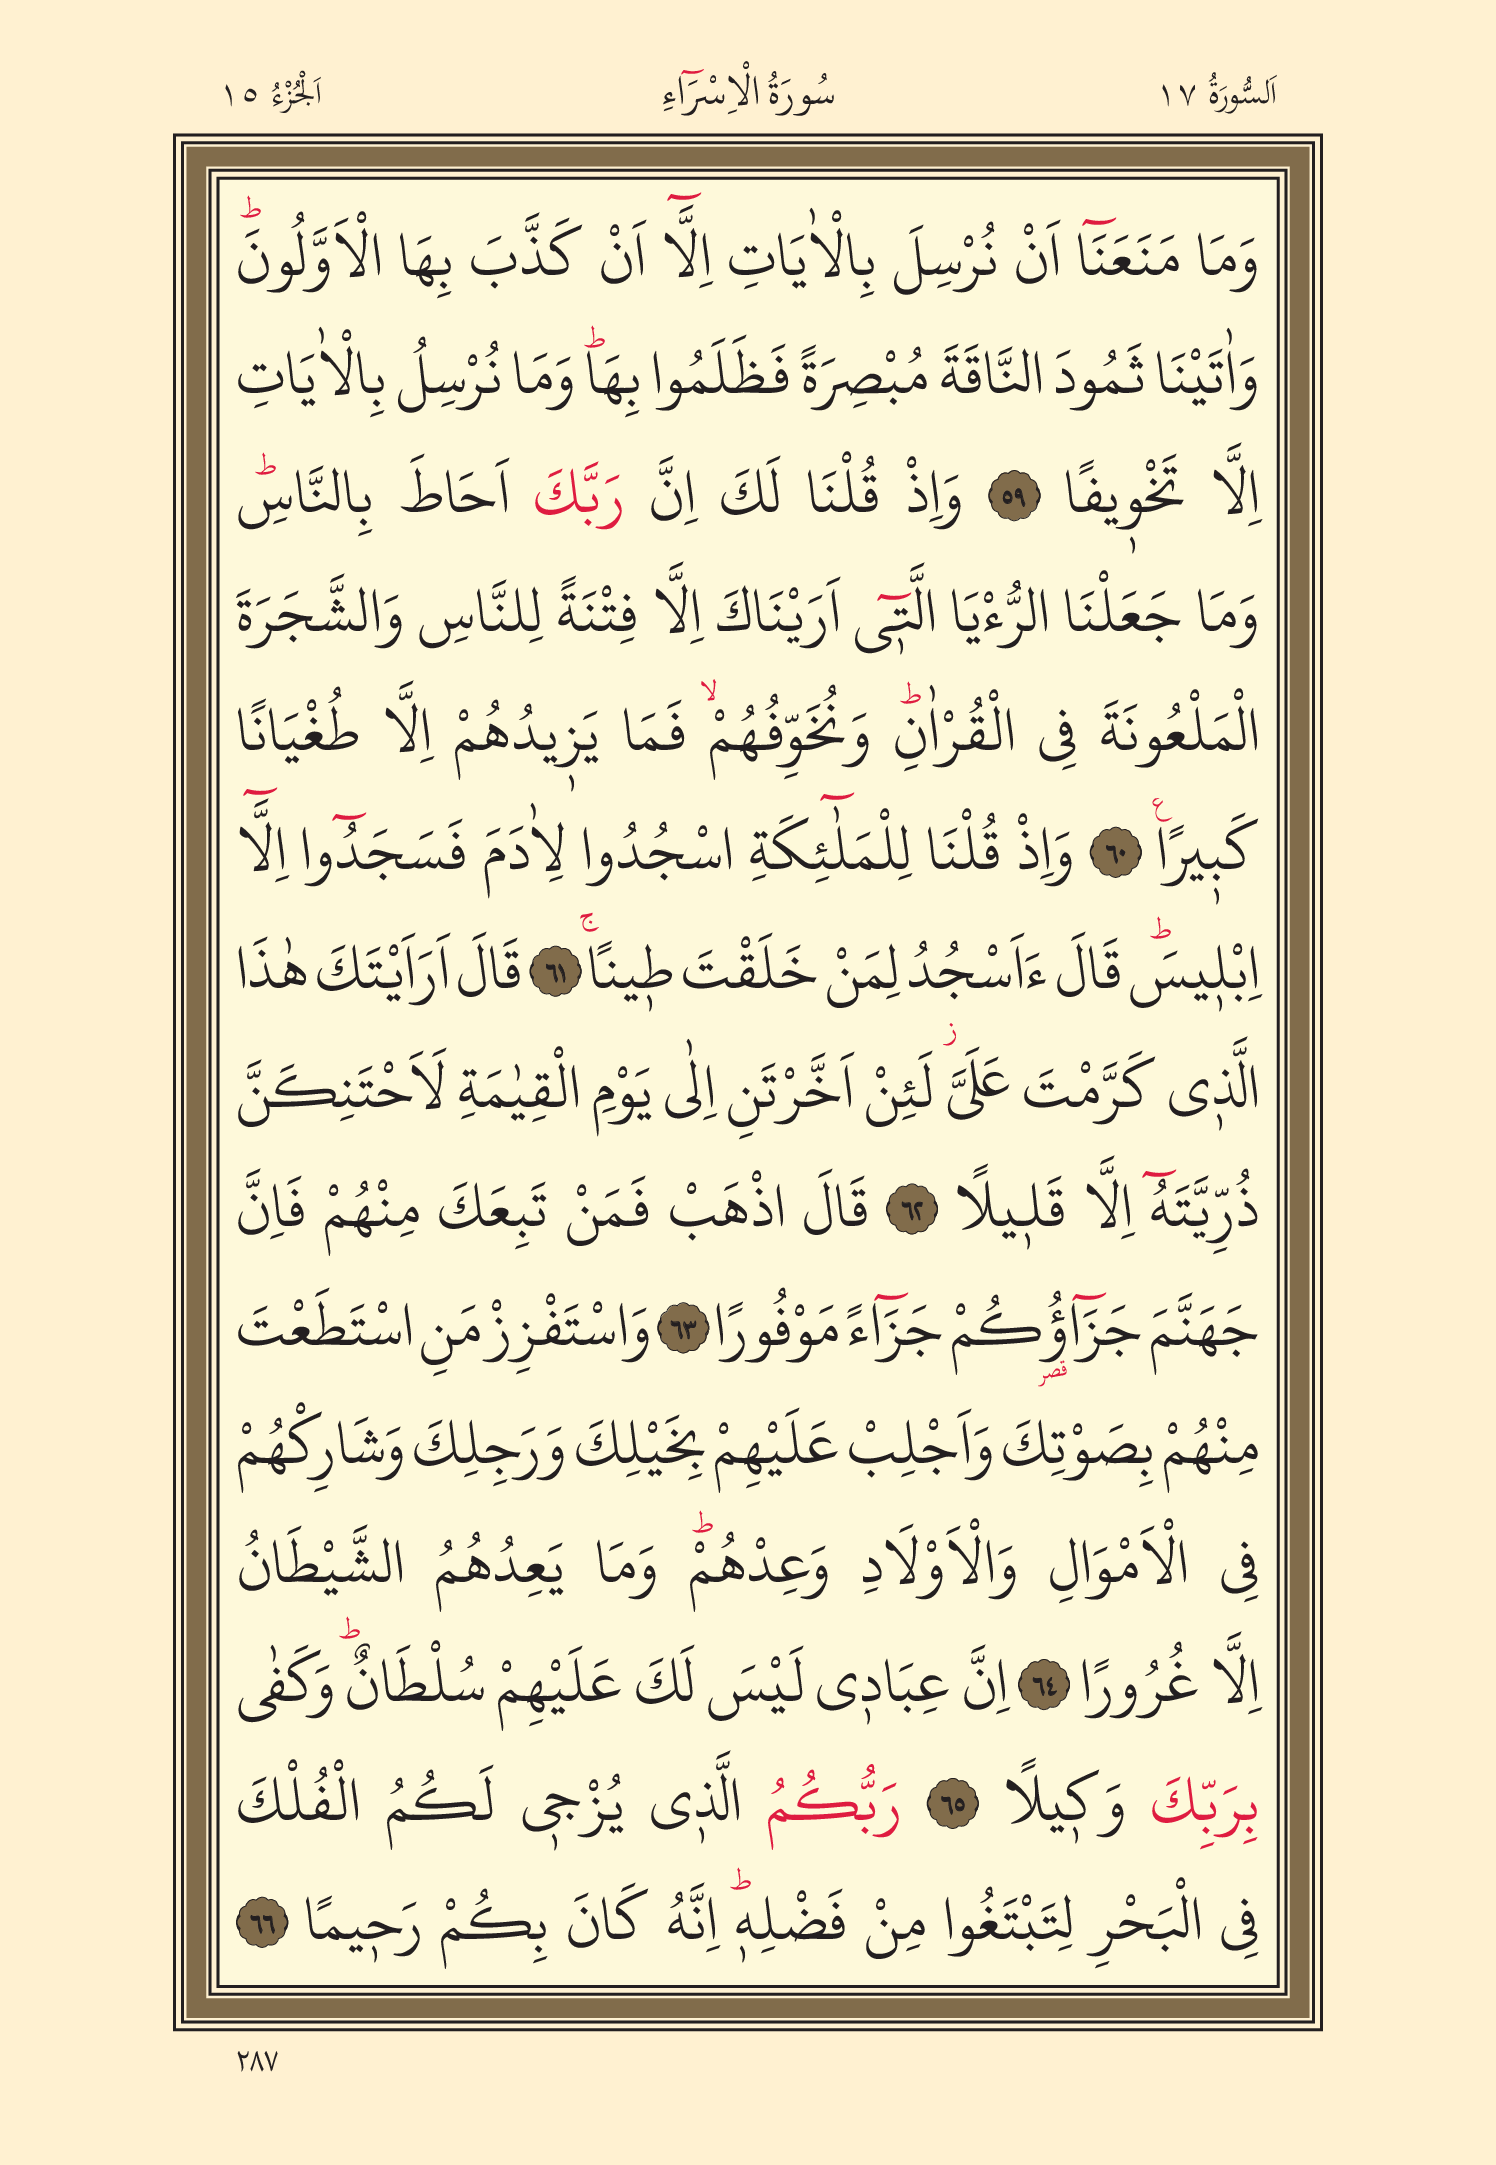 اَلسُّورَةُ ١٧ سُورَةُ الْاِسْرَٓاءِ اَلْجُزْءُ ١٥
وَمَا مَنَعَنَٓا اَنْ نُرْسِلَ بِالْاٰيَاتِ اِلَّٓا اَنْ كَذَّبَ بِهَا الْاَوَّلُونَۜ
وَاٰتَيْنَا ثَمُودَ النَّاقَةَ مُبْصِرَةً فَظَلَمُوا بِهَاۜ وَمَا نُرْسِلُ بِالْاٰيَاتِ
اِلَّا تَخْو۪يفًا ﴿٥٩﴾ وَاِذْ قُلْنَا لَكَ اِنَّ رَبَّكَ اَحَاطَ بِالنَّاسِۜ
وَمَا جَعَلْنَا الرُّءْيَا الَّت۪ٓى اَرَيْنَاكَ اِلَّا فِتْنَةً لِلنَّاسِ وَالشَّجَرَةَ
الْمَلْعُونَةَ فِى الْقُرْاٰنِۜ وَنُخَوِّفُهُمْۙ فَمَا يَز۪يدُهُمْ اِلَّا طُغْيَانًا
كَب۪يرًا۟ ﴿٦٠﴾ وَاِذْ قُلْنَا لِلْمَلٰٓئِكَةِ اسْجُدُوا لِاٰدَمَ فَسَجَدُٓوا اِلَّٓا
اِبْل۪يسَۜ قَالَ ءَاَسْجُدُ لِمَنْ خَلَقْتَ ط۪ينًاۚ ﴿٦١﴾ قَالَ اَرَاَيْتَكَ هٰذَا
الَّذ۪ى كَرَّمْتَ عَلَىَّۘ لَئِنْ اَخَّرْتَنِ اِلٰى يَوْمِ الْقِيٰمَةِ لَاَحْتَنِكَنَّ
ذُرِّيَّتَهُٓ اِلَّا قَل۪يلًا ﴿٦٢﴾ قَالَ اذْهَبْ فَمَنْ تَبِعَكَ مِنْهُمْ فَاِنَّ
جَهَنَّمَ جَزَٓاؤُ۬كُمْ جَزَٓاءً مَوْفُورًا ﴿٦٣﴾ وَاسْتَفْزِزْ مَنِ اسْتَطَعْتَ
مِنْهُمْ بِصَوْتِكَ وَاَجْلِبْ عَلَيْهِمْ بِخَيْلِكَ وَرَجِلِكَ وَشَارِكْهُمْ
فِى الْاَمْوَالِ وَالْاَوْلَادِ وَعِدْهُمْۜ وَمَا يَعِدُهُمُ الشَّيْطَانُ
اِلَّا غُرُورًا ﴿٦٤﴾ اِنَّ عِبَاد۪ى لَيْسَ لَكَ عَلَيْهِمْ سُلْطَانٌۜ وَكَفٰى
بِرَبِّكَ وَك۪يلًا ﴿٦٥﴾ رَبُّكُمُ الَّذ۪ى يُزْج۪ى لَكُمُ الْفُلْكَ
فِى الْبَحْرِ لِتَبْتَغُوا مِنْ فَضْلِه۪ۜ اِنَّهُ كَانَ بِكُمْ رَح۪يمًا ﴿٦٦﴾
٢٨٧